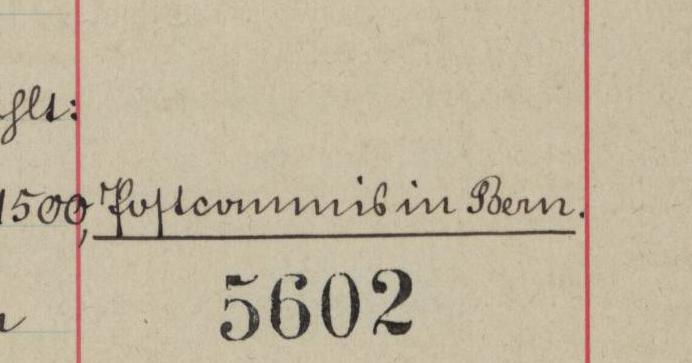 hlt:
1500, Postcommis in Bern.
5602